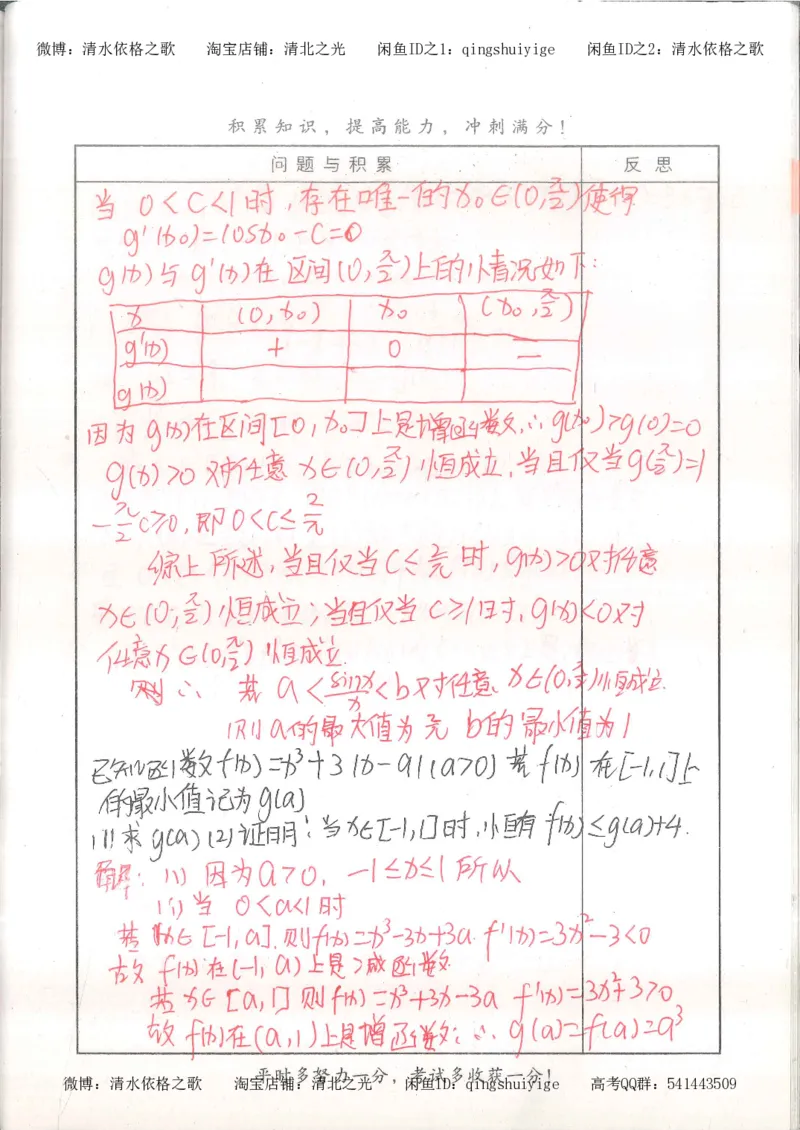 微博：清水依格之歌 淘宝店铺：清北之光 闲鱼ID之1：qingshuiyige 闲鱼ID之2：清水依格之歌
积累知识，提高能力，冲刺满分！
问题与积累 反思
当 0<C<1时,存在唯一的x₀∈(0,π/2)使得
g'(x₀)=cosx₀-C=0
g(x)与g'(x)在区间(0,π/2)上的小情况如下:
x (0,x₀) x₀ (x₀,π/2)
g'(x) + 0 —
g(x)
因为g(x)在区间[0,x₀]上是增函数,∴g(x₀)>g(0)=0
g(x)>0对任意x∈(0,π/2)恒成立,当且仅当g(π/2)=1
-π/2C≥0,即0<C≤2/π
综上所述,当且仅当C≤2/π时,g(x)>0对任意
x∈(0,π/2)恒成立;当且仅当C≥1时,g(x)<0对
任意x∈(0,π/2)恒成立.
则∴ 若a<sinx/x<b对任意x∈(0,π/2)恒成立.
则a的最大值为2/π b的最小值为1
已知函数f(x)=x³+3|x-a|(a>0)若f(x)在[-1,1]上
的最小值记为g(a)
(1)求g(a) (2)证明:当x∈[-1,1]时,恒有f(x)≤g(a)+4.
解:(1)因为a>0,-1≤x≤1所以
(i)当 0<a<1时
若x∈[-1,a].则f(x)=x³-3x+3a.f'(x)=3x²-3<0
故f(x)在(-1,a)上是减函数
若x∈[a,1]则f(x)=x³+3x-3a f'(x)=3x²+3>0
故f(x)在(a,1)上是增函数;∴g(a)=f(a)=a³
平时多努力一分，考试多收获一分！
微博：清水依格之歌 淘宝店铺：清北之光 闲鱼ID：qingshuiyige 高考QQ群：541443509